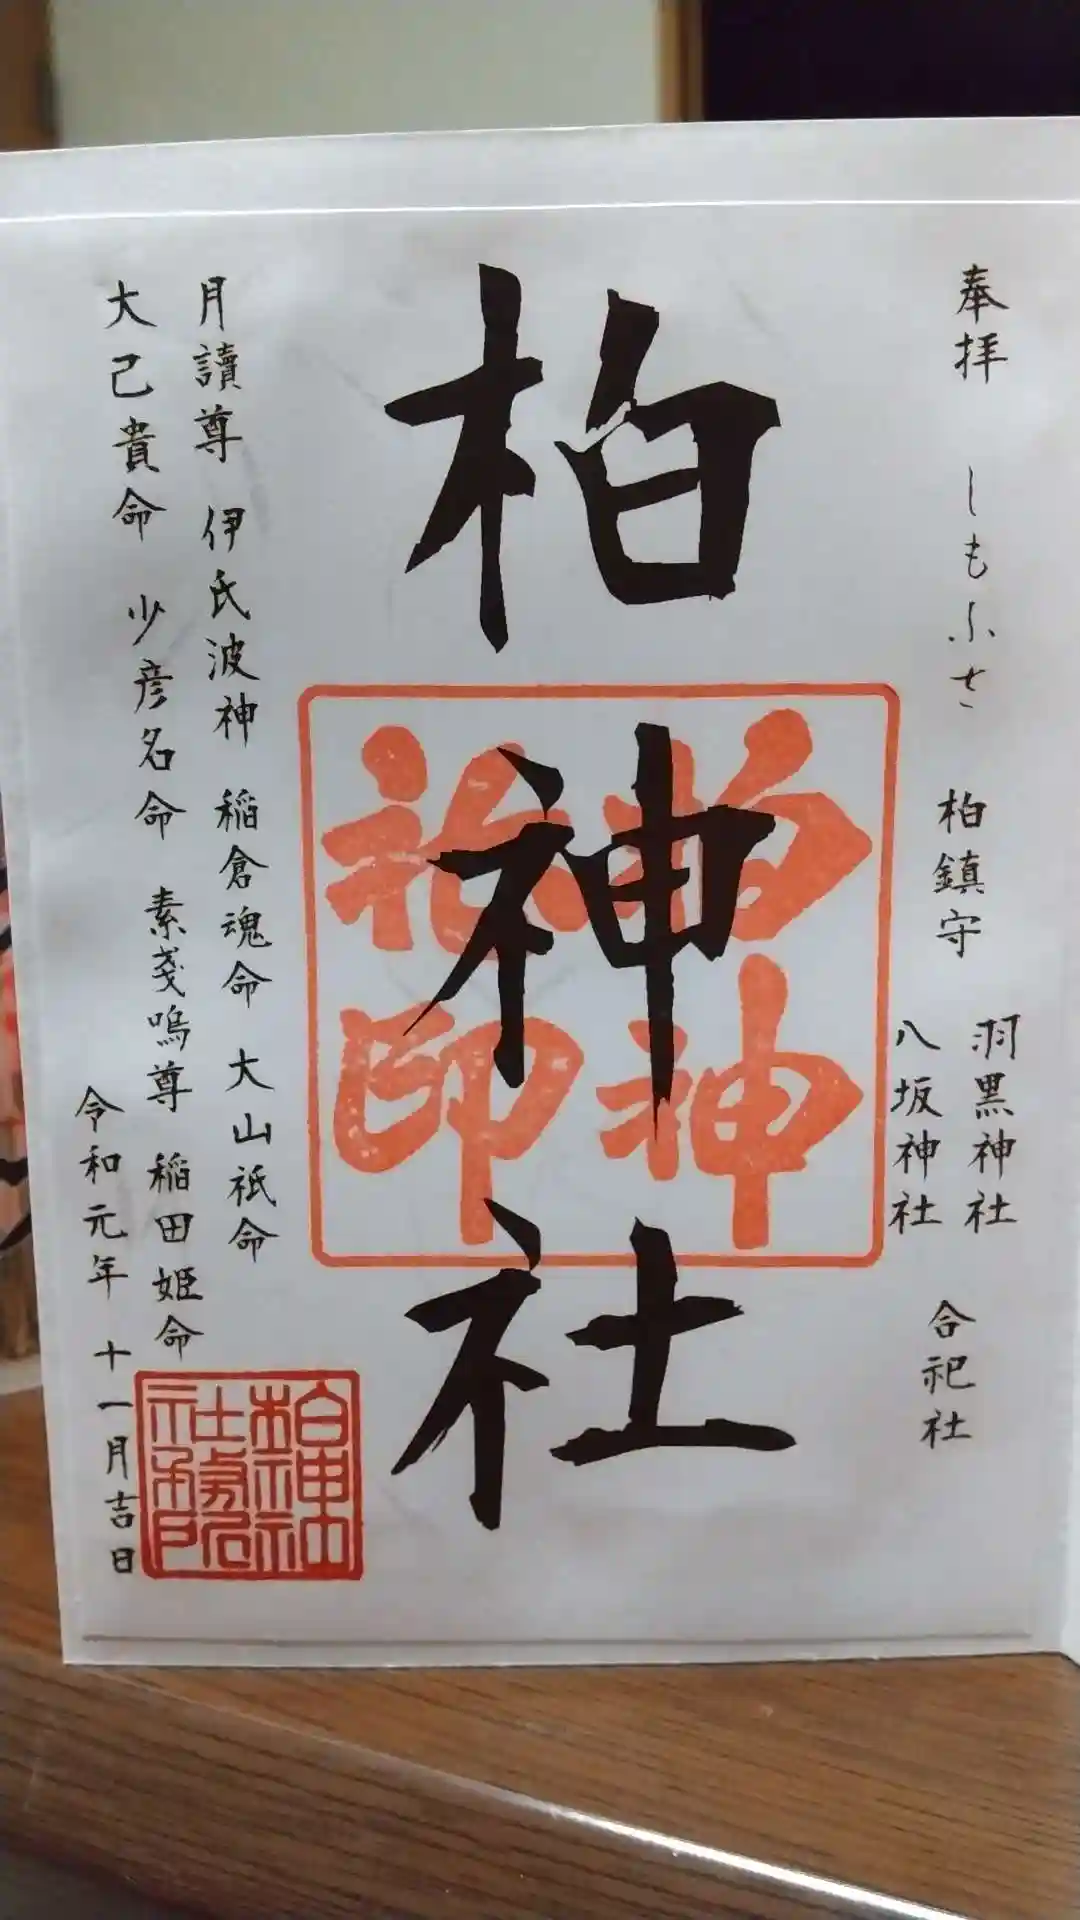 奉拝 しもふさ 柏鎮守
羽黒神社
八坂神社
合祀社
柏神社
柏神社印
月讀尊 伊氐波神 稲倉魂命 大山祇命
大己貴命 少彦名命 素戔嗚尊 稲田姫命
令和元年 十一月吉日
柏神社社務所